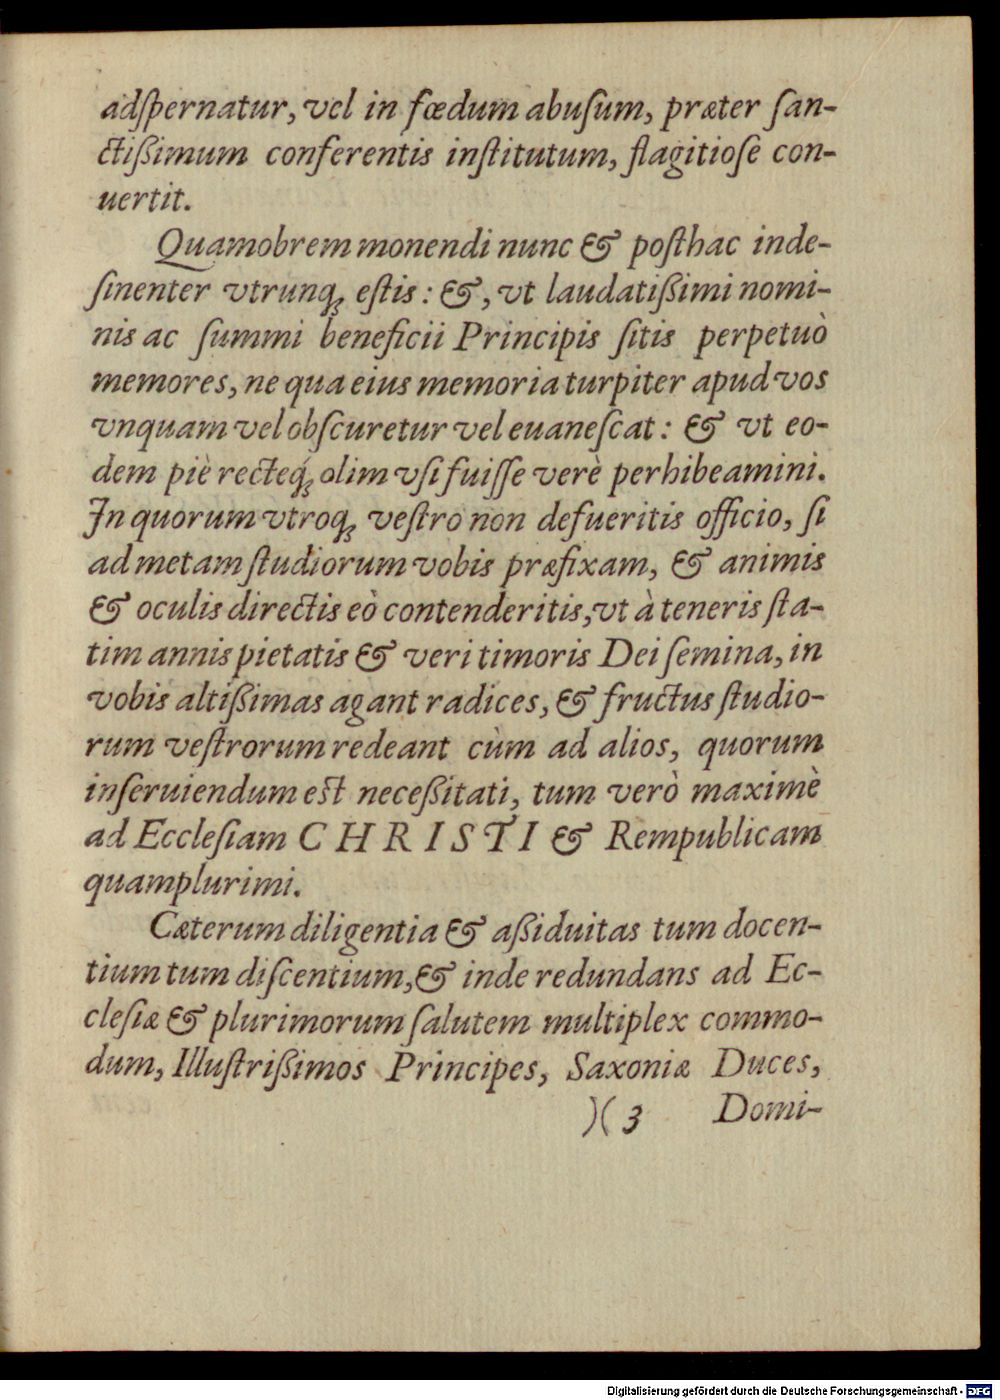 adſpernatur, vel in fœdum abuſum, præter ſan-
ctißimum conferentis inſtitutum, flagitioſè con-
uertit.
Quamobrem monendi nunc & poſthac inde-
ſinenter vtrunq; eſtis: &, vt laudatißimi nomi-
nis ac ſummi beneficii Principis ſitis perpetuò
memores, ne qua eius memoria turpiter apud vos
vnquam vel obſcuretur vel euaneſcat: & vt eo-
dem piè recteq́; olim vſi fuiſſe verè perhibeamini.
In quorum vtroq; veſtro non defueritis officio, ſi
ad metam ſtudiorum vobis præfixam, & animis
& oculis directis eò contenderitis, vt à teneris ſta-
tim annis pietatis & veri timoris Dei ſemina, in
vobis altißimas agant radices, & fructus ſtudio-
rum veſtrorum redeant cùm ad alios, quorum
inſeruiendum est neceßitati, tum verò maximè
ad Eccleſiam CHRISTI & Rempublicam
quamplurimi.
Cæterum diligentia & aßiduitas tum docen-
tium tum diſcentium, & inde redundans ad Ec-
cleſiæ & plurimorum ſalutem multiplex commo-
dum, Illuſtrißimos Principes, Saxoniæ Duces,
)( 3 Domi-
Digitalisierung gefördert durch die Deutsche Forschungsgemeinschaft - DFG